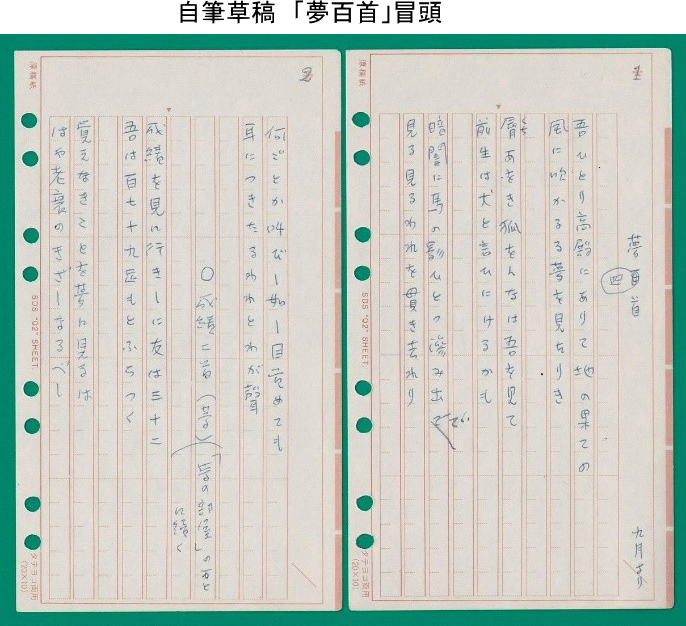 自筆草稿 「夢百首」冒頭
1
夢百首
四
九月より
吾ひとり高殿にありて地の果ての
風に吹かるる夢を見たりき
脣あをき狐をんなは吾を見て
くち
前生は犬と言ひにけるかも
暗闇に馬の影ひとつ滲み出で
でい
見る見るわれを貫き去れり
原稿紙
SDS "Q2" SHEET
タテヨコ両用
(20×10)
2
何ごとか叫びし如し目定めても
耳につきたるわれとわが聲
○ 成績二首(昔)
「昔の部屋」のあと
に續く
成績を見に行きしに友は三十二
吾は百七十九点もとぶらつく
覚えなきことを夢に見るは
はや老衰のきざしなるべし
原稿紙
SDS "Q2" SHEET
タテヨコ両用
(20×10)